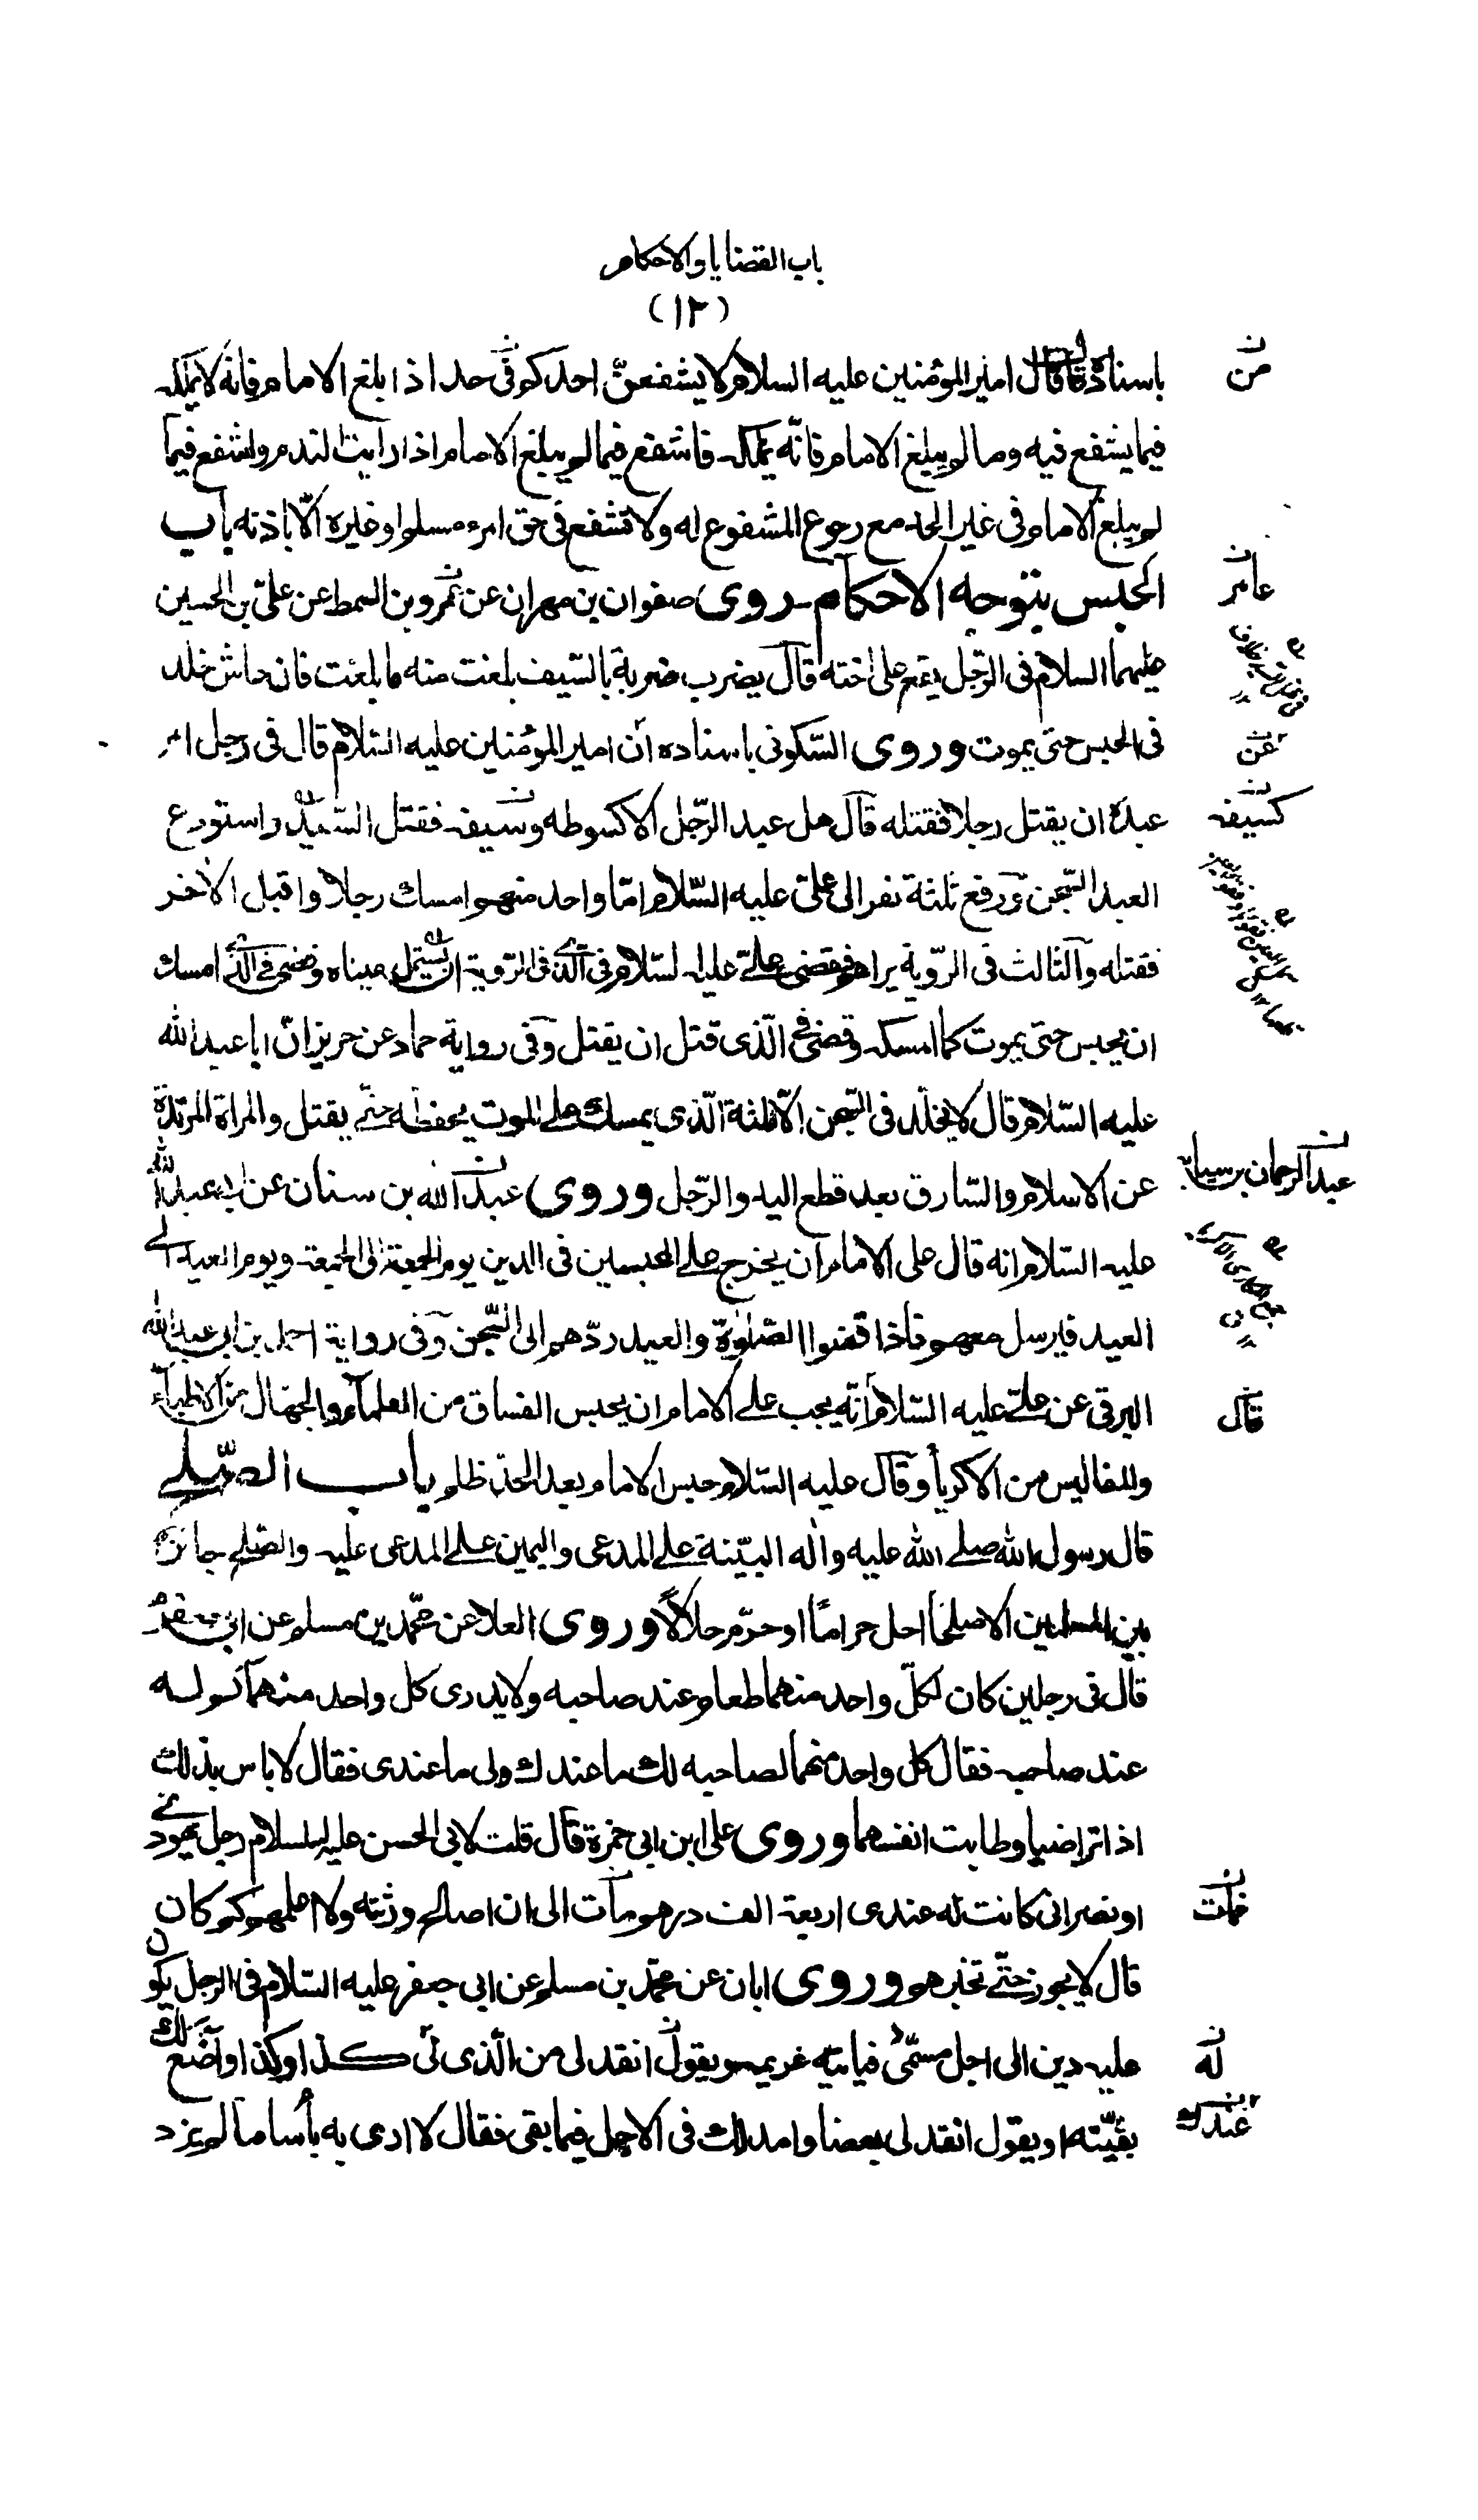 باب القضايا والاحكام
(١٢)
باسناده قال امير المؤمنين عليه السلام لا يشفعنّ احدكم فى حد اذا بلغ الامام فانه لا يملكه
فيما يشفع فيه وما لم يبلغ الامام فانّه يملكه فاشفع فيما لم يبلغ الامام اذا رايت الندم واشفع فيما
لم يبلغ الامام فى غير الحد مع رجوع المشفوع له ولا تشفع فى حق امرء مسلم او غيره الّا باذنه باب
الحبس بتوجه الاحكام روى صفوان بن مهران عن عمرو بن السمط عن علىّ بن الحسين
عليهما السلام فى الرّجل يقع على اخته قال يضرب ضربة بالسّيف بلغت منه ما بلغت فان عاش خلد
فى الحبس حتى يموت وروى السّكونى باسناده انّ امير المؤمنين عليه السّلام قال فى رجل امر
عبده ان يقتل رجلا فقتله قال هل عبد الرّجل الا كسوطه وسيفه فقتل السّيّد واستودع
العبد السّجن ورفع ثلثة نفر الى علىّ عليه السّلام امّا واحد منهم امسك رجلا واقبل الاخر
فقتله والثالث فى الرّوية يراهم فقضى علىّ عليه السّلام فى الّذى فى الرّوية ان يستمل عيناه وقضى فى الّذى امسك
ان يحبس حتى يموت كما امسكه وقضى فى الّذى قتل ان يقتل وفى رواية حماد عن حريز انّ ابا عبد الله
عليه السّلام قال لا يخلّد فى السّجن الّا ثلثة الّذى يمسك على الموت يحفظه حتّى يقتل والمراة المرتدّة
عن الاسلام والسّارق بعد قطع اليد والرّجل وروى عبد الله بن سنان عن ابى عبد الله
عليه السّلام انه قال على الامام ان يخرج على المحبسين فى الدين يوم الجمعة الى الجمعة ويوم العيد الى
العيد فيرسل معهم فاذا قضوا الصّلوة والعيد ردّهم الى السّجن وفى رواية احمد بن ابى عبد الله
البرقى عن علىّ عليه السّلام انّه يجب على الامام ان يحبس الفساق من العلماء والجهّال من الاطبّاء
والمفاليس من الاكرياء وقال عليه السّلام حبس الامام بعد الحدّ ظلم باب الصّلح
قال رسول الله صلى الله عليه واله البيّنة على المدعى واليمين على المدعى عليه والصّلح جائز
بين المسلمين الا صلحًا احل حرامًا او حرّم حلالًا وروى العلا عن محمّد بن مسلم عن ابى جعفر
قال فى رجلين كان لكلّ واحد منهما طعام عند صاحبه ولا يدرى كل واحد منهما كم له
عند صاحبه فقال كل واحد منهما لصاحبه لك ما عندك ولى ما عندى فقال لا باس بذلك
اذا تراضيا وطابت انفسهما وروى على ابن ابى حمزة قال قلت لابى الحسن عليه السلام رجل يهودى
او نصرانى كانت له عندى اربعة الف درهم مات الى ان اصالح ورثته ولا اعلمهم كم كان
قال لا يجوز حتّى تخبرهم وروى ابان عن محمّد بن مسلم عن ابى جعفر عليه السّلام فى الرجل يكون
عليه دين الى اجل مسمّى فياتيه غريمه ويقول انقد لى من الّذى لى كذا وكذا واضع لك
بقيّته او يقول انقد لى بعضا وامد لك فى الاجل فيما بقى فقال لا ارى به بأسا ما لم يزد
من
عامر
عن
كسيفه
عبد الرحمان بن سيابه
قال
فمات
له
عندك